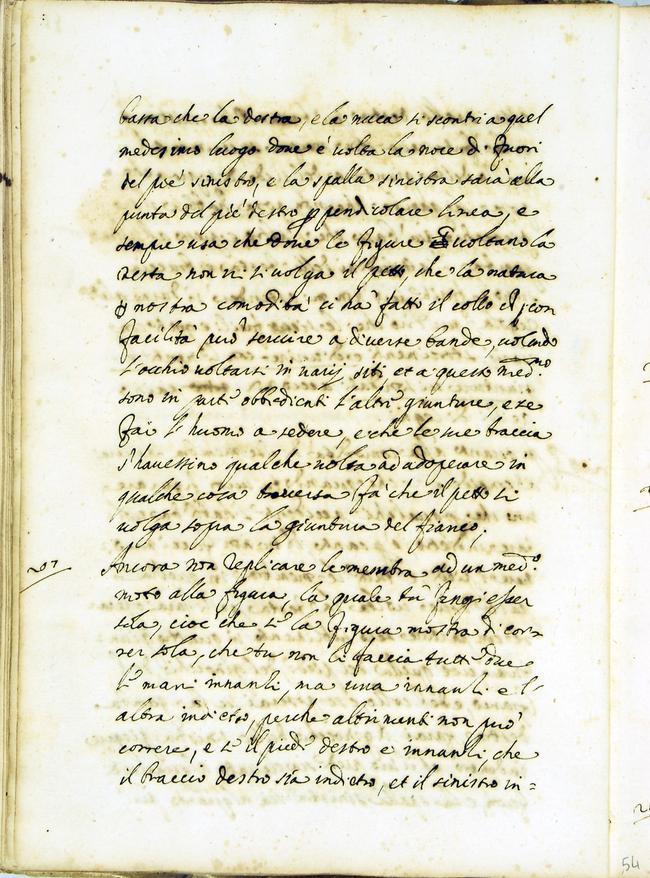 bassa che la destra, e la nuca si scontri a quel
medesimo luogo doue è uolta la noce di fuori
del pié sinistro, e la spalla sinistra sarà alla
punta del pié destro per pendicolare linea, e
sempre usa che doue le figure uoltano la
testa non ui si uolga il petto, che la natura
p nostra comodità ci hà fatto il collo ch con
facilità può seruire a diuerse bande, uolendo
l'occhio uoltarsi in uarij siti et a questo med.mo
sono in parte obbedienti l'altre giunture, e se
fai l'huomo a sedere, e che le sue braccia
s'hauessino qualche uolta ad adoperare in
qualche cosa trauersa fà che il petto si
uolga sopra la giuntura del fianco;
207 Ancora non replicare le membra ad un med.o
moto alla figura, la quale tu fingi esser
sola, cioè che se la figura mostra di cor=
rer sola, che tu non li faccia tutte due
le mani innanti, ma una innanti e l'
altra indietro, perche altrimenti non può
correre, e se il piede destro e innanti, che
il braccio destro sia indietro, et il sinistro in=
54